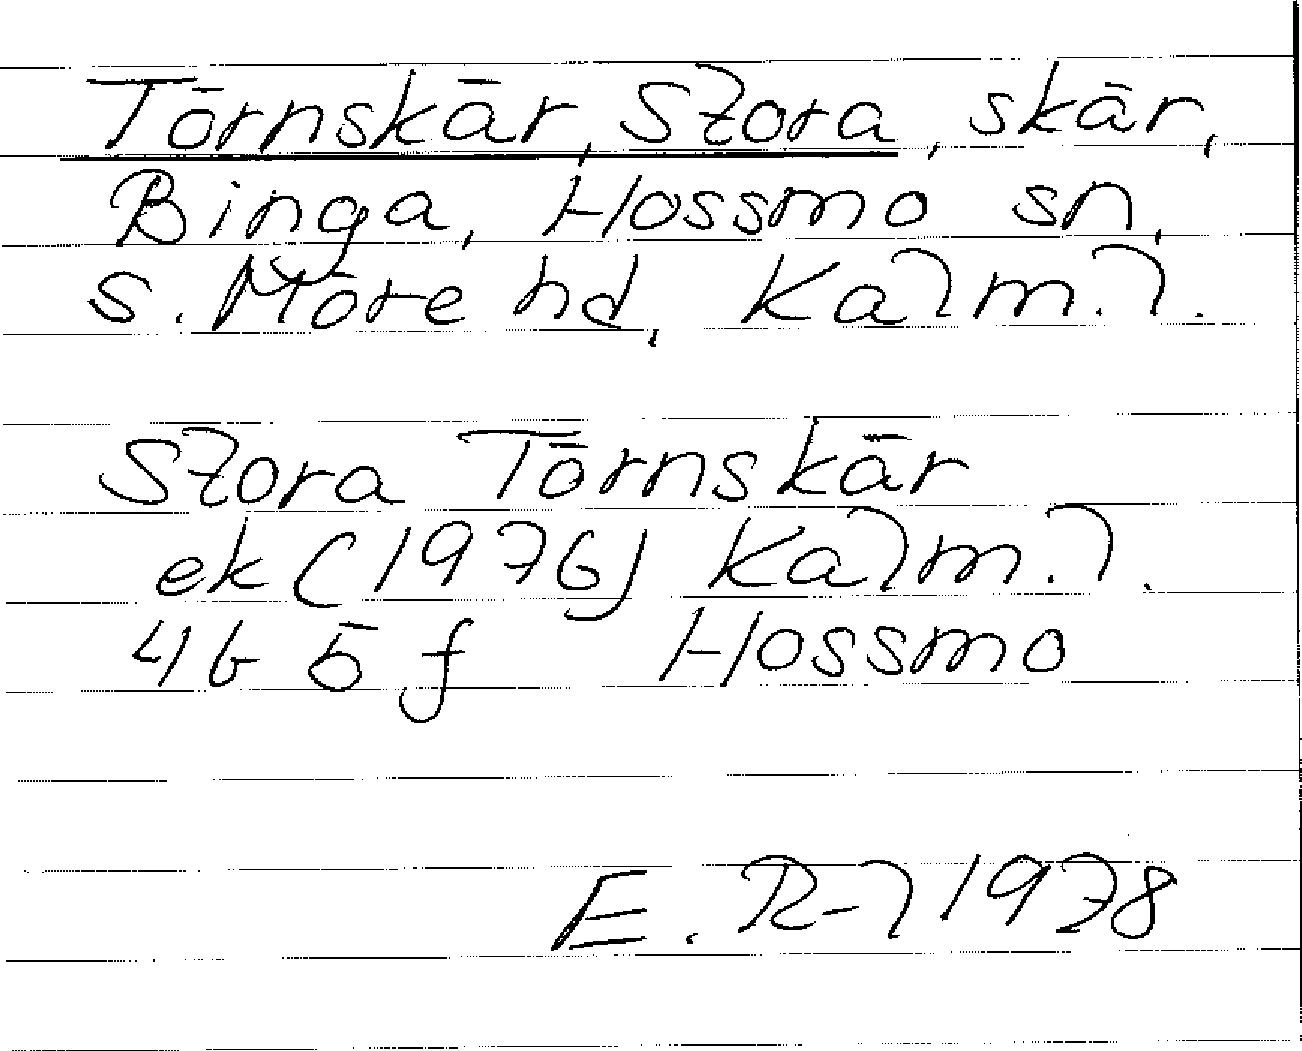 Törnskär, Stora, skär,
Binga, Hossmo sn,
S. Möre hd, Kalm. l.
Stora Törnskär
ek (1976) Kalm. l.
4G 5f Hossmo
E. R-l 1978